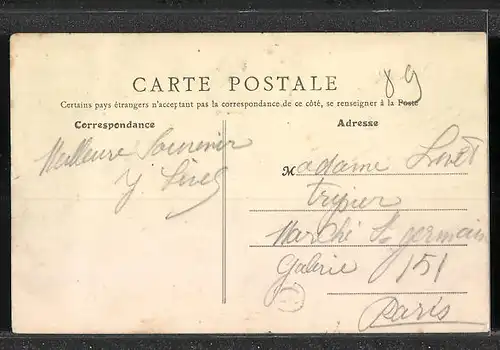 89
CARTE POSTALE
Certains pays étrangers n'acceptant pas la correspondance de ce côté, se renseigner à la Poste
Correspondance
Meilleure Souvenir
Adresse
Madame
tripier
Marché St germain
Galerie 151
Paris